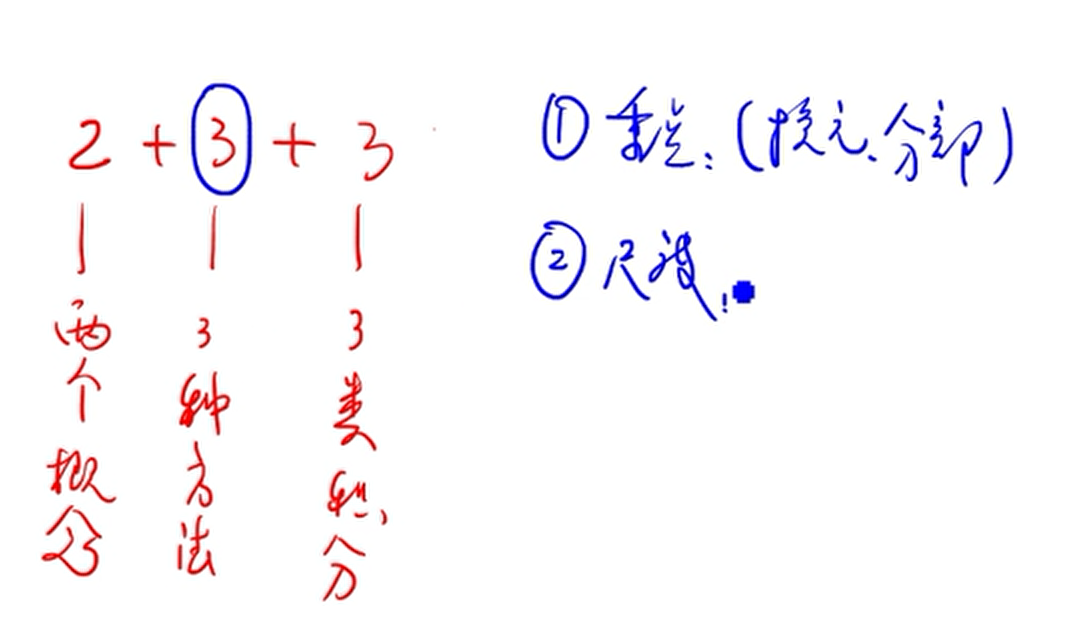 2 + 3 + 3
两个概念
3种方法
3类积分
① 重点：（换元、分部）
② 尺度！